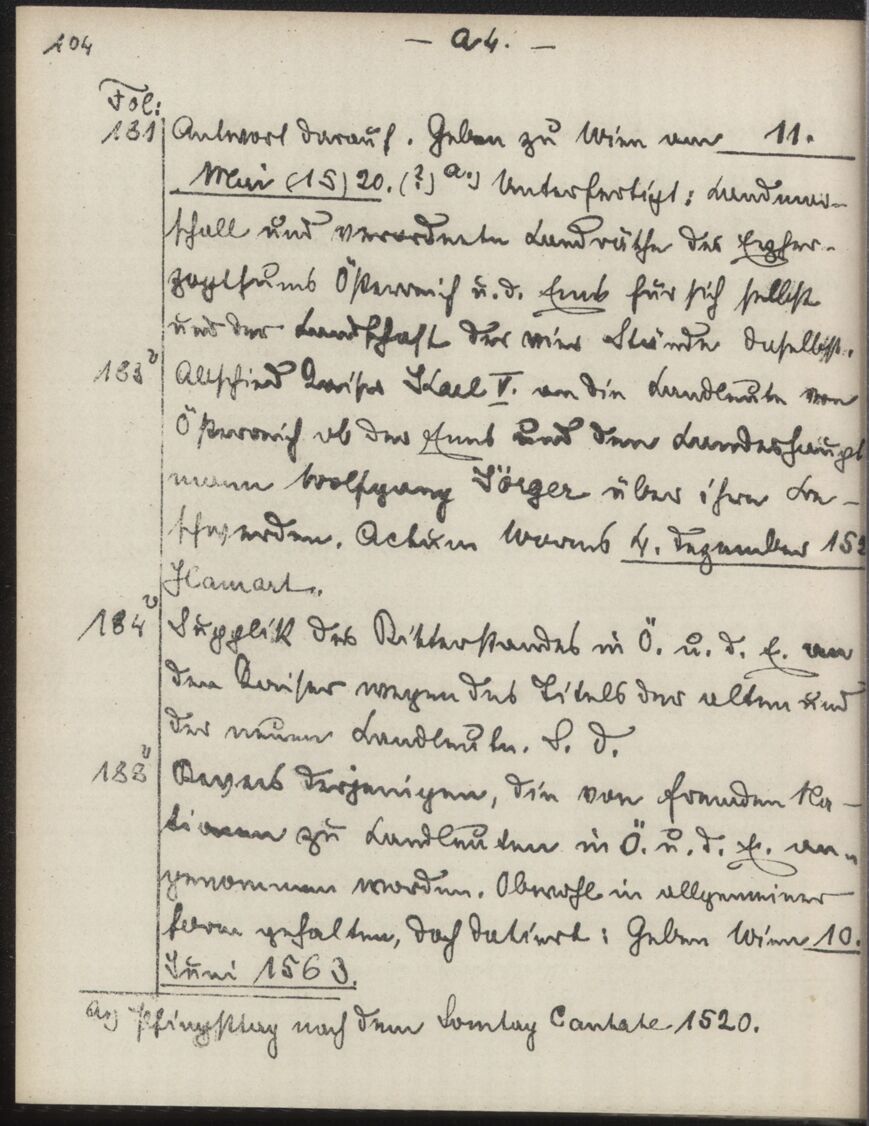 104
— A 4. —
Fol:
181 Antwort darauf. Geben zu Wien am 11.
Mai (15)20. (?) a.) Unterfertigt: Landmar-
schall und verordnete Landräthe des Erzher-
zogthums Österreich u. d. Enns für sich selbst
und der Landschaft der vier Stände daselbst.
183v Abschied Kaiser Karl V. an die Landleute von
Österreich ob der Enns und den Landeshaupt
mann Wolfgang Jörger über ihre Be-
schwerden. Actum Worms 4. Dezember 152
Hamart.
184v Supplik des Ritterstandes in Ö. u. d. E. an
den Kaiser wegen des Titels der alten und
der neuen Landleute. S. d.
188v Revers derjenigen, die von fremden Na-
tionen zu Landleuten in Ö. u. d. E. an-
genommen worden. Obwohl in allgemeiner
Form gehalten, doch datiert: Geben Wien 10.
Juni 1563.
a.) Pfingsttag nach dem Sontag Cantate 1520.